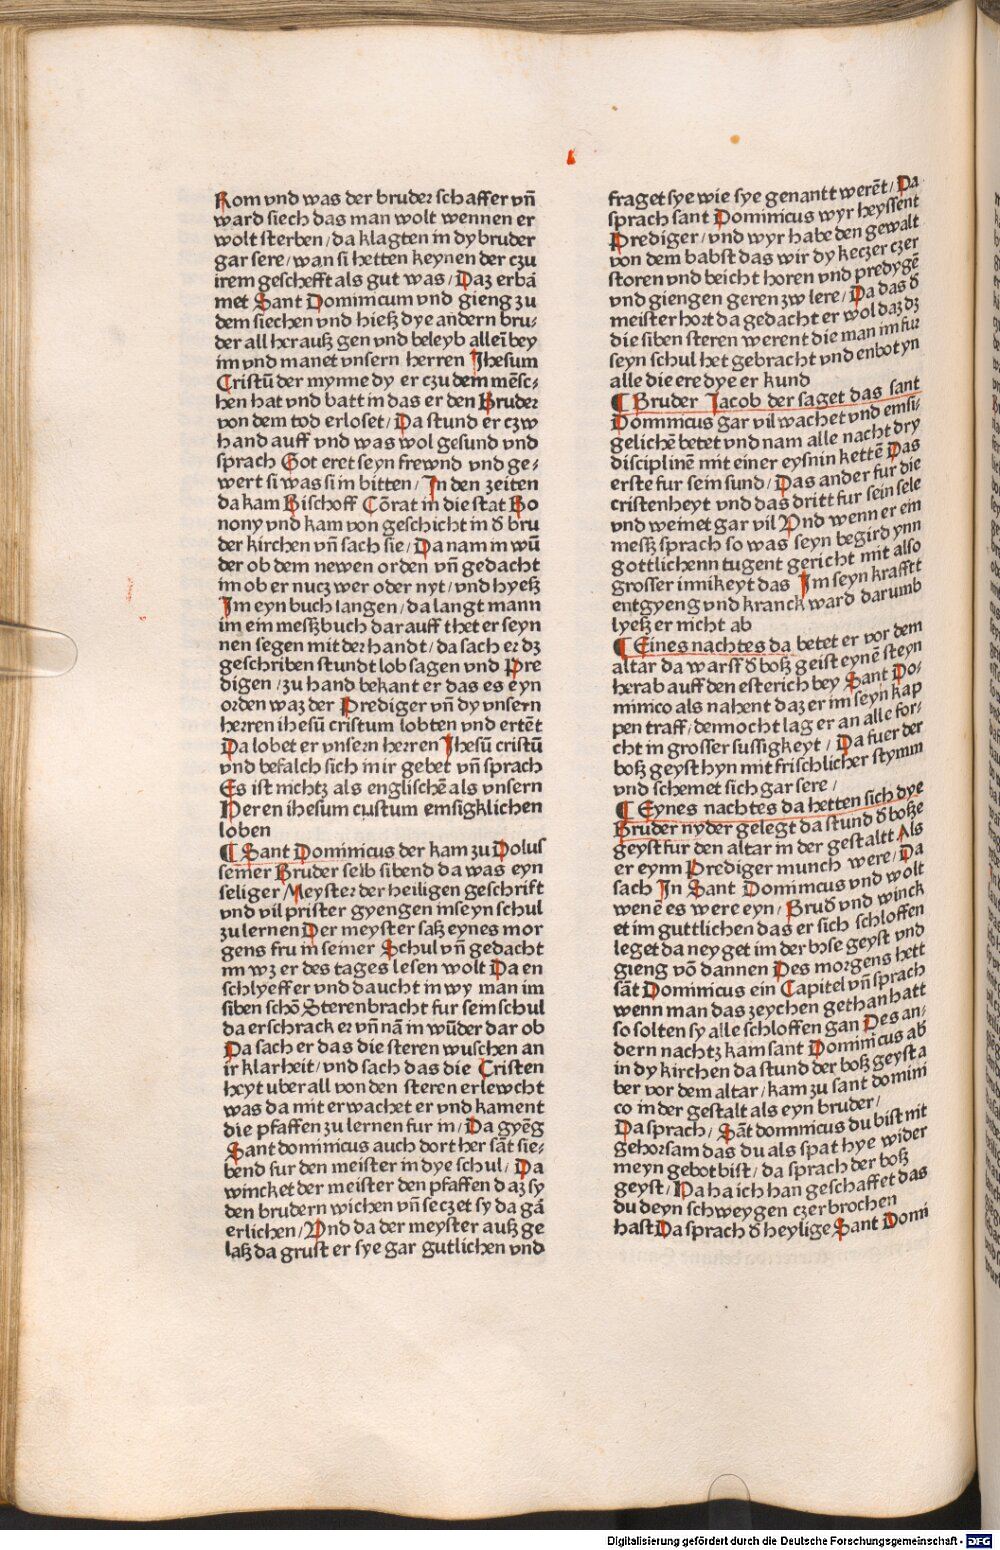 Rom vnd was der bruder schaffer vn̄
ward siech das man wolt wennen er
wolt sterben / da klagten in dy bruder
gar sere / wan si hetten keynen der czu
irem geschefft als gut was / Daz erbā
met Sant Dominicum vnd gieng zu
dem siechen vnd hieß dye andern bru⸗
der all herauß gen vnd beleyb allei bey
im vnd manet vnsern herren Jhesum
Cristū der mynne dy er czu dem mēsc⸗
hen hat vnd batt in das er den Bruder
von dem tod erloset / Da stund er czw
hand auff vnd was wol gesund vnd
sprach Got eret seyn frewnd vnd ge⸗
wert si was si in bitten / In den zeiten
da kam Bischoff Cōrat in die stat Bo
nony vnd kam von geschicht in d̄ bru
der kirchen vn̄ sach sie / Da nam in wū
der ob dem newen orden vn̄ gedacht
im ob er nucz wer oder nyt / vnd hyeß
Im eyn buch langen / da langt mann
im ein meßbuch darauff thet er seyn
nen segen mit der handt / da sach er dz
geschriben stundt lob sagen vnd Pre
digen / zu hand bekant er das es eyn
orden waz der Prediger vn̄ dy vnsern
herren ihesū cristum lobten vnd ertēt
Da lobet er vnsern herren Jhesū cristū
vnd befalch sich in ir gebet vn̄ sprach
Es ist nichtz als englischē als vnsern
Heren ihesum cristum emsigklichen
loben
¶ Sant Dominicus der kam zu Dolus
seiner Bruder selb sibend da was eyn
seliger Meyster der heiligen geschrift
vnd vil prister gyengen in seyn schul
zu lernen Der meyster saß eynes mor
gens fru in seiner Schul vn̄ gedacht
im wz er des tages lesen wolt Da en
schlyeff er vnd daucht in wy man im
siben schō Sterenbracht fur sein schul
da erschrack er vn̄ nā in wūder dar ob
Da sach er das die steren wuschen an
ir klarheit / vnd sach das die Cristen
heyt uber all von den steren erlewcht
was da mit erwachet er vnd kament
die pfaffen zu lernen fur in / Da gyēg
Sant dominicus auch dort her sāt sie⸗
bend fur den meister in dye schul / Da
wincket der meister den pfaffen daz sy
den brudern wichen vn̄ seczet sy da gā
erlichen / Vnd da der meyster auß ge
laß da grust er sye gar gutlichen vnd
fraget sye wie sye genantt werēt / Da
sprach sant Dominicus wyr heyssent
Prediger / vnd wyr habe den gewalt
von dem babst das wir dy keczer czer
storen vnd beicht horen vnd predygē
vnd giengen geren zw lere / Da das d̄
meister hort da gedacht er wol daz dz
die siben steren werent die man im fur
seyn schul het gebracht vnd enbot yn
alle die ere dye er kund
¶ Bruder Jacob der saget das sant
Dominicus gar vil wachet vnd emsi⸗
gelichē betet vnd nam alle nacht dry
disciplinē mit einer eysnin kettē Das
erste fur sein sund / Das ander fur die
cristenheyt vnd das dritt fur sein sele
vnd weinet gar vil Vnd wenn er ein
meß sprach so was seyn begird ynn
gottlichenn tugent gericht mit also
grosser innikeyt das Im seyn krafftt
entgyeng vnd kranck ward darumb
lyeß er nicht ab
¶ Eines nachtes da betet er vor dem
altar da warff d̄ boß geist eynē steyn
herab auff den esterich bey Sant Do⸗
minico als nahent daz er im seyn kap
pen traff / dennocht lag er an alle for⸗
cht in grosser sussigkeyt / Da fuer der
boß geyst hyn mit frischlicher stymm
vnd schemet sich gar sere /
¶ Eynes nachtes da hetten sich dye
Bruder nyder gelegt da stund d̄ boße
geyst fur den altar in der gestaltt Als
er eynn Prediger munch were / Da
sach In Sant Dominicus vnd wolt
wenē es were eyn / Brud̄ vnd winck
et im guttlichen das er sich schloffen
leget da neyget im der bose geyst vnd
gieng vō dannen Des morgens hett
sāt Dominicus ein Capitel vn̄ sprach
wenn man das zeychen gethan hatt
so solten sy alle schloffen gan Des an⸗
dern nachtz kam sant Dominicus ab̄
in dy kirchen da stund der boß geyst a
ber vor dem altar / kam zu sant domini
co in der gestalt als eyn bruder /
Da sprach / Sāt dominicus du bist nit
gehorsam das du als spat hye wider
meyn gebot bist / da sprach der boß
geyst / Ha ha ich han geschaffet das
du deyn schweygen czerbrochen
hast Da sprach d̄ heylige Sant Domi
Digitalisierung gefördert durch die Deutsche Forschungsgemeinschaft - DFG